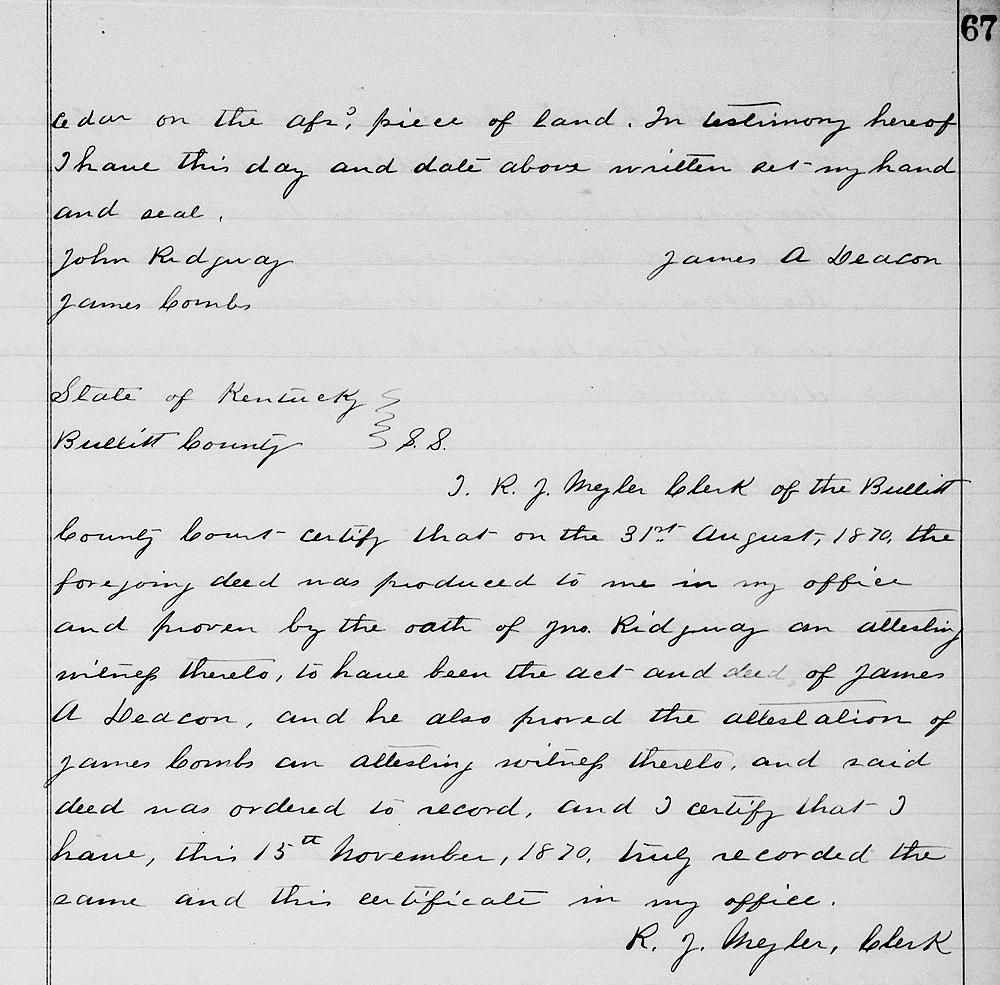 67
cedar on the afsd, piece of land. In testimony hereof
I have this day and date above written set my hand
and seal.
John Ridgway James A Deacon
James Combs
State of Kentucky
Bullitt County } S.S.
I. R. J. Meyler Clerk of the Bullitt
County Court certify that on the 31st August, 1870, the
foregoing deed was produced to me in my office
and proven by the oath of Jno. Ridgway an attesting
witness thereto, to have been the act and deed, of James
A Deacon, and he also proved the attestation of
James Combs an attesting witness thereto, and said
deed was ordered to record, and I certify that I
have, this 15th November, 1870, truly recorded the
same and this certificate in my office.
R. J. Meyler, Clerk